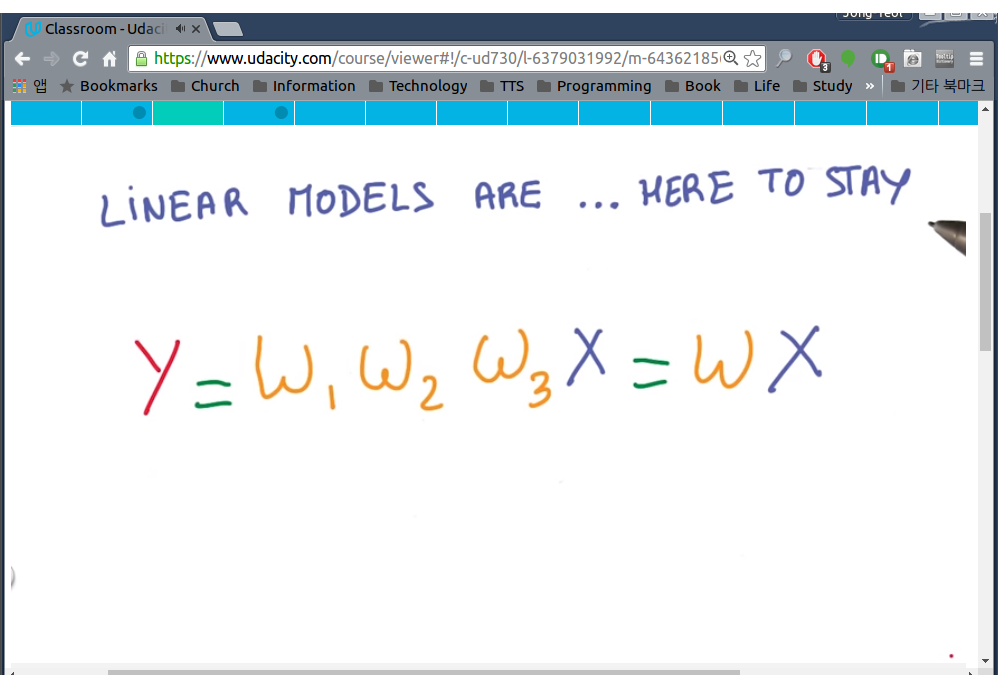 Jong Yeol
Classroom - Udaci
https://www.udacity.com/course/viewer#!/c-ud730/l-6379031992/m-64362185
3
1
앱 Bookmarks Church Information Technology TTS Programming Book Life Study » 기타 북마크
LINEAR MODELS ARE ... HERE TO STAY
Y = W₁ W₂ W₃ X = W X